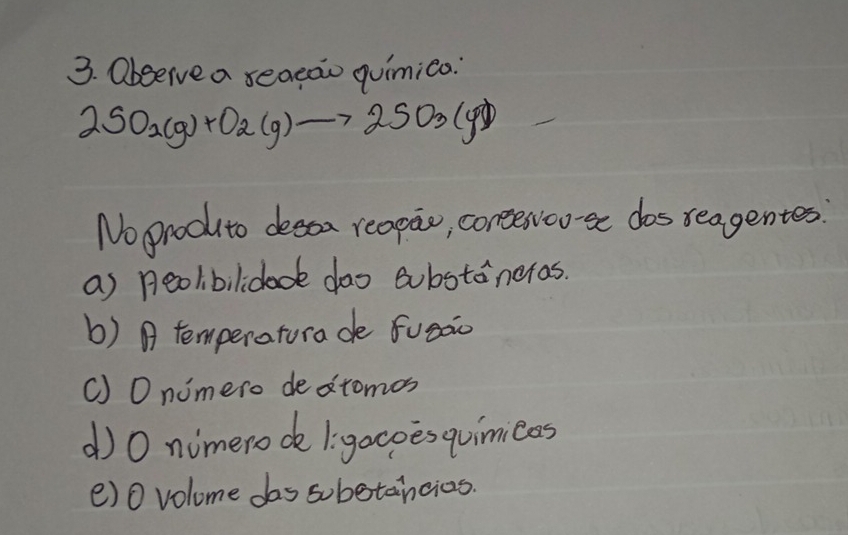 3. Observe a reação química:
2SO₂(g)+O₂(g)→2SO₃(g)
No produto dessa reação, conservou-se dos reagentes:
a) A solibilidade das substâncias.
b) A temperatura de fusão
c) O número de átomos
d) O número de ligações químicas
e) O volume das substâncias.